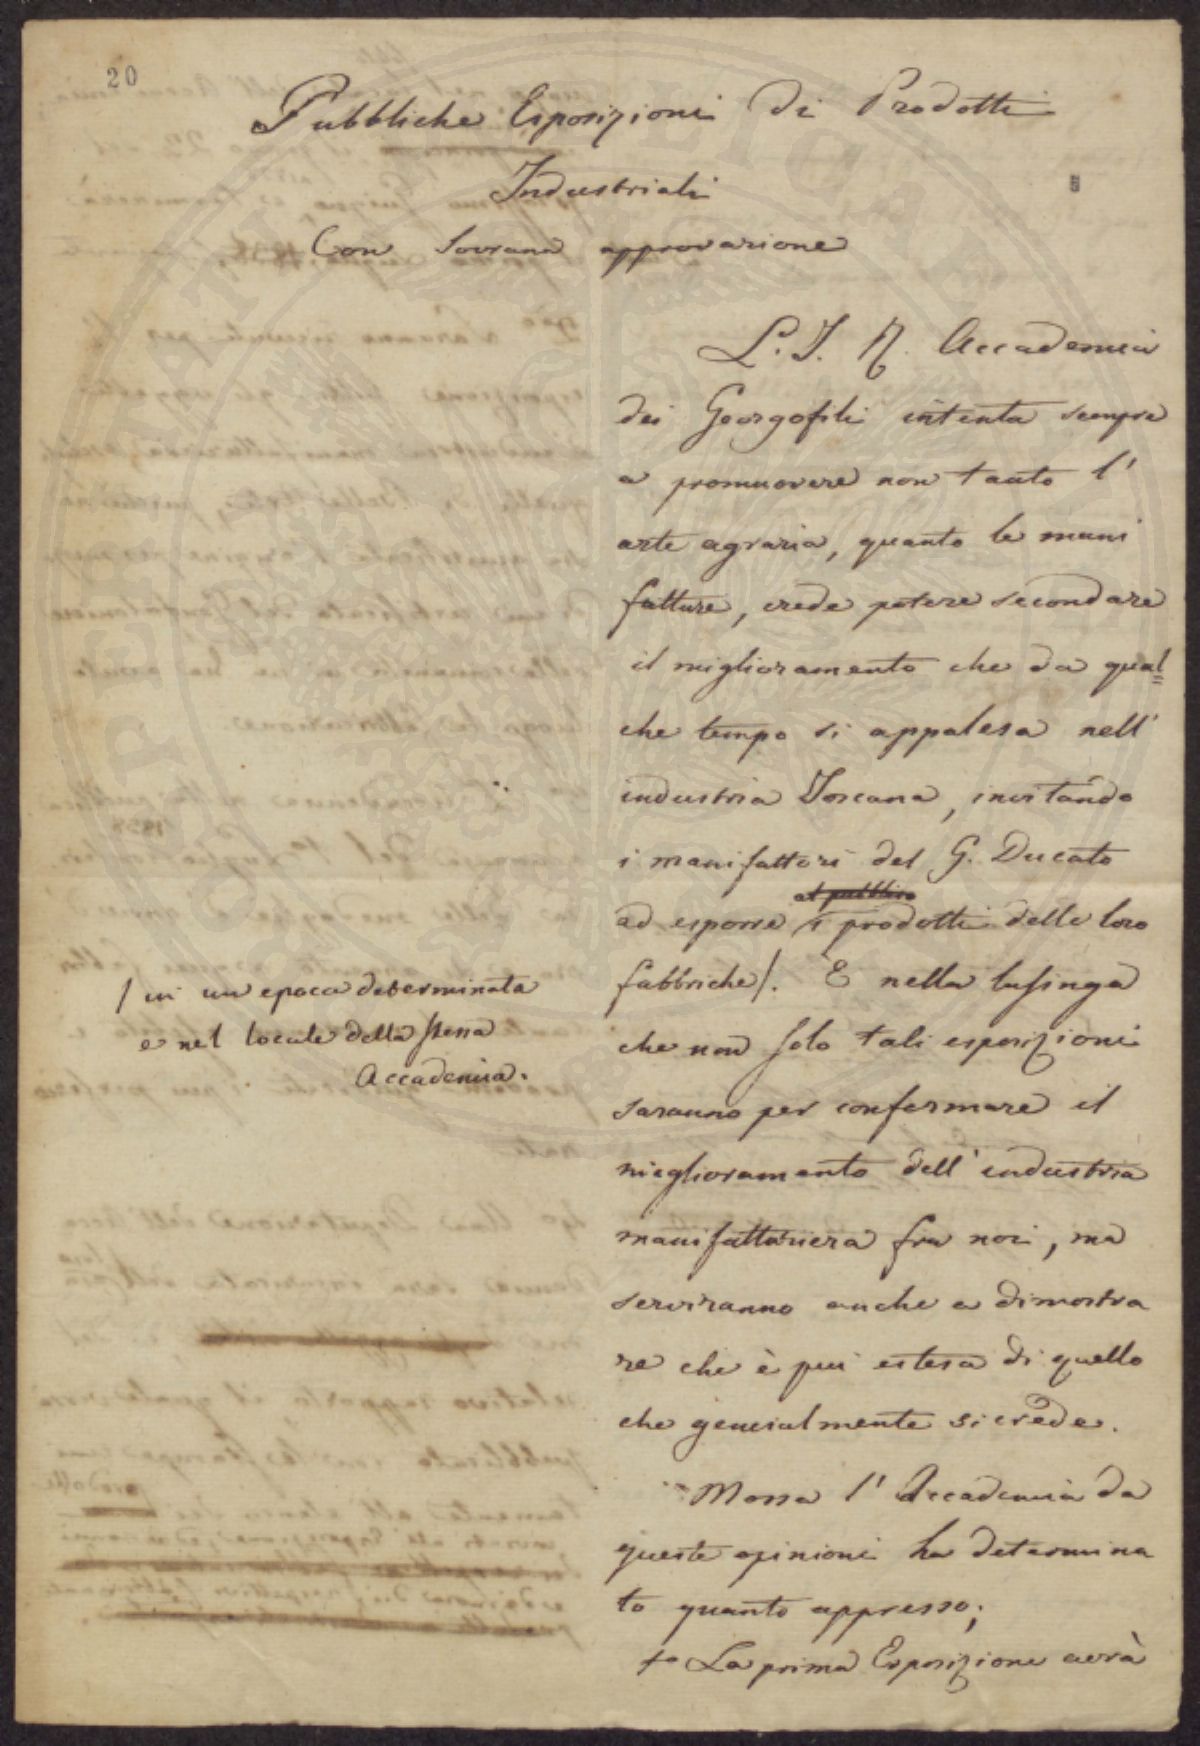 20
Pubbliche Esposizioni di Prodotti
Industriali
Con Sovrana approvazione
L. I. R. Accademia
dei Georgofili intenta sempre
a promuovere non tanto l'
arte agraria, quanto le mani
fatture, crede potere secondare
il miglioramento che da qual=
che tempo si appalesa nell'
industria Toscana, invitando
i manifattori del G. Ducato
al pubblico
ad esporre i prodotti delle loro
fabbriche/. E nella lusinga
/ in un epoca determinata
e nel locale della stessa
Accademia.
che non solo tali esposizioni
saranno per confermare il
miglioramento dell'industria
manifatturiera fra noi, ma
serviranno anche a dimostra
re che è più estesa di quello
che generalmente si crede.
Mossa l'Accademia da
queste opinioni ha determina
to quanto appresso;
1º La prima Esposizione avrà